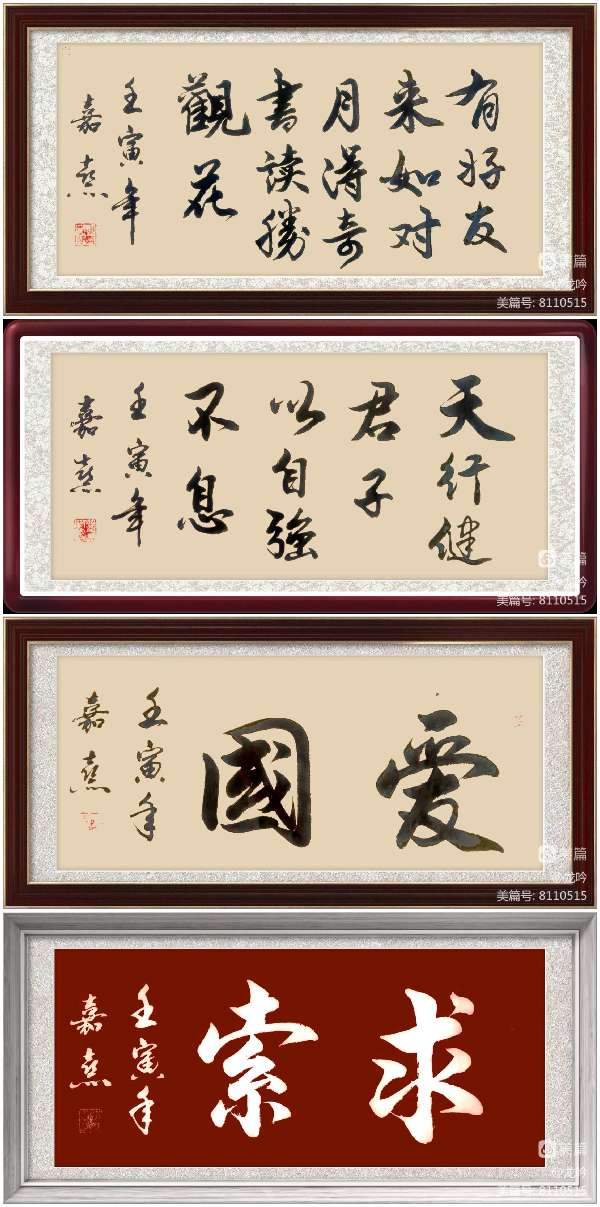 有好友
来如对
月得奇
書读勝
觀花
壬寅年
嘉熹
美篇
@龙吟
美篇号: 8110515
天行健
君子
以自強
不息
壬寅年
嘉熹
美篇
@龙吟
美篇号: 8110515
爱
國
壬寅年
嘉熹
美篇
@龙吟
美篇号: 8110515
求
索
壬寅年
嘉熹
美篇
@龙吟
美篇号: 8110515